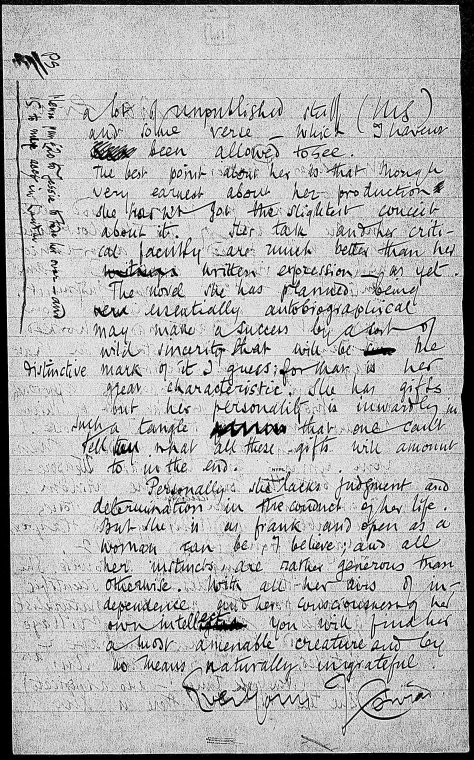 a lot of unpublished stuff (MS)
and some verse – which I havent
been allowed to see.
The best point about her is that though
very earnest about her production
she has not got the slightest conceit
about it. Her talk and her criti-
cal facultly are much better than her
written expression – as yet.
The novel she has planned being
essentially autobiographical
may make a success by a sort of
wild sincerity that will be the
distinctive mark of it I guess; for that is her
great characteristic. She has gifts
but her personality is inwardly in
such a tangle that one can't
tell what all these gifts will amount
to in the end.
NYPL
Personally she lacks judgment and
determination in the conduct of her life.
But she is as frank and open as a
woman can be I believe; and all
her instincts are rather generous than
otherwise. With all her airs of in-
dependence and her consciousness of her
own intellect you will find her
a most amenable creature and by
no means naturally ungrateful.
Ever Yours J Conrad
PS
£20 to Jessie to over – and
15 to in London